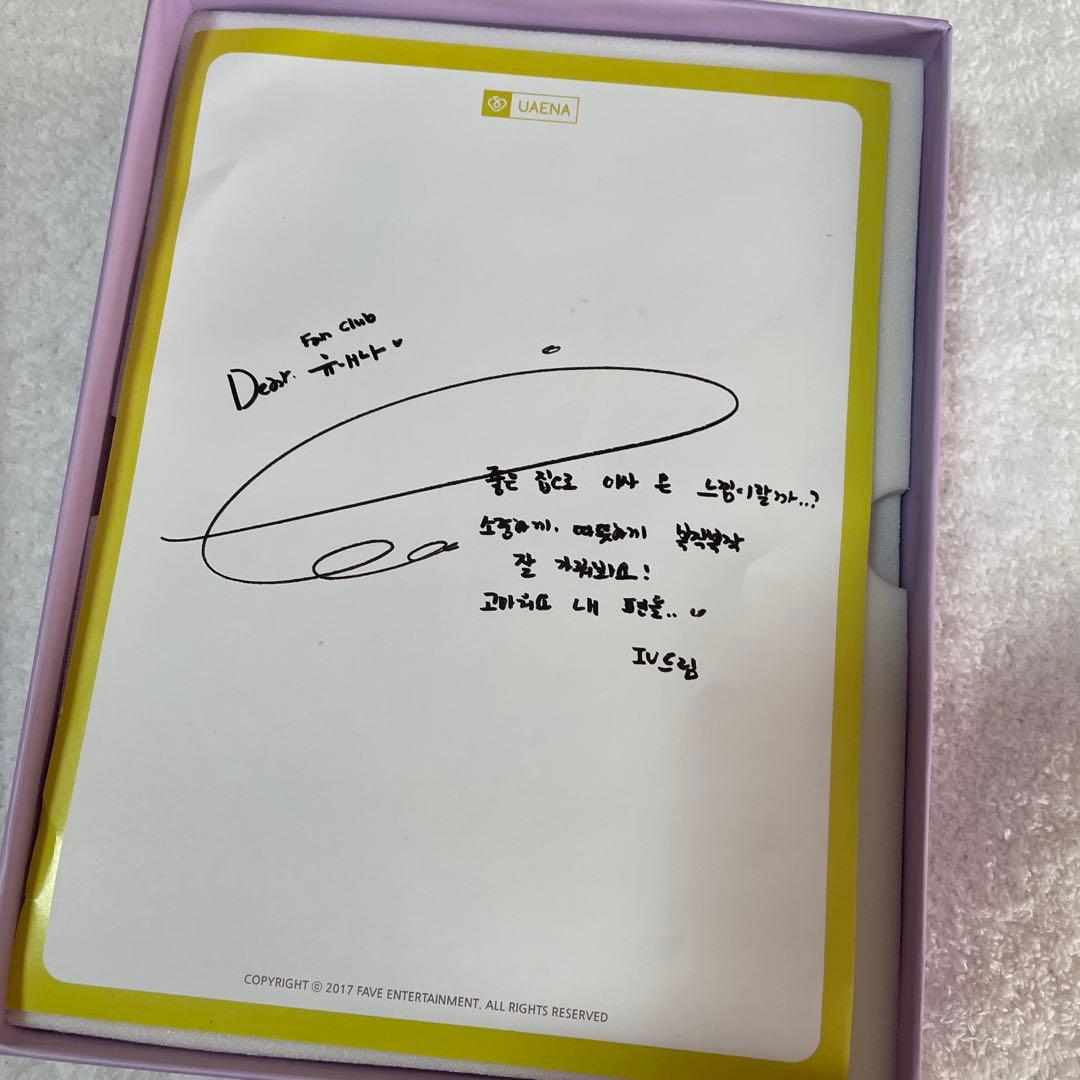 UAENA
Fan club
Dear. 유애나
좋은 집으로 이사 온 느낌이랄까..?
소중하게. 따뜻하게 복작복작
잘 가꿔봐요!
고마워요 내 편들..
IU드림
COPYRIGHT © 2017 FAVE ENTERTAINMENT. ALL RIGHTS RESERVED